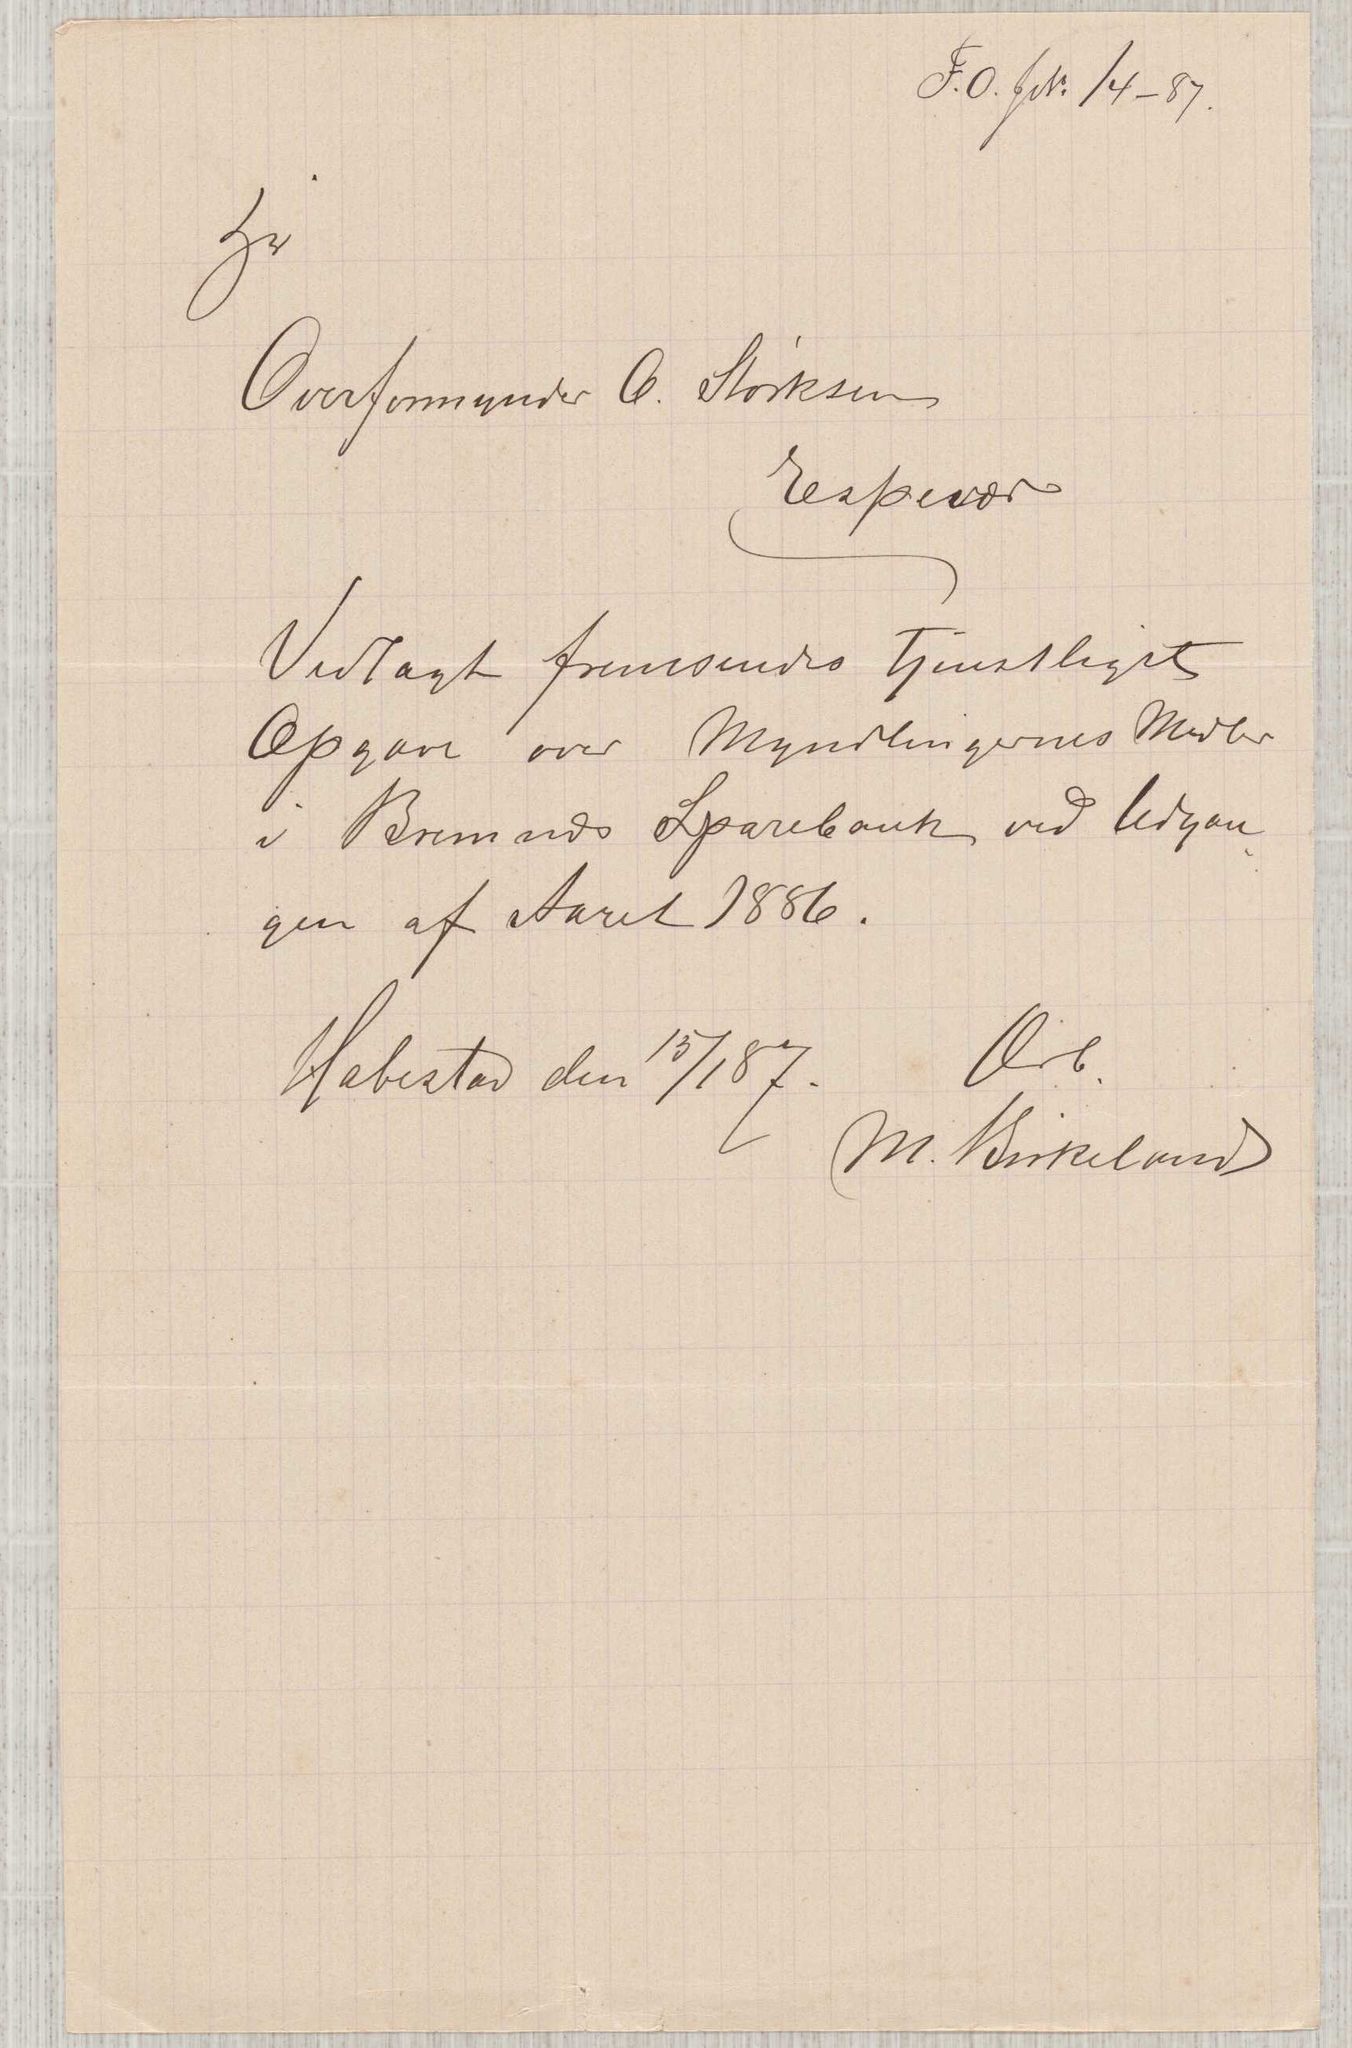 F.O. JNr. 1/4-87.
Hr
Overformynder O. Störksen
Espevær
Vedlagt fremsendes tjenstligst
Opgave over Myndlingernes Midler
i Bremnes Sparebank ved Udgan-
gen af Aaret 1886.
Habestad den 15/1 87. Ærb.
M. Birkeland